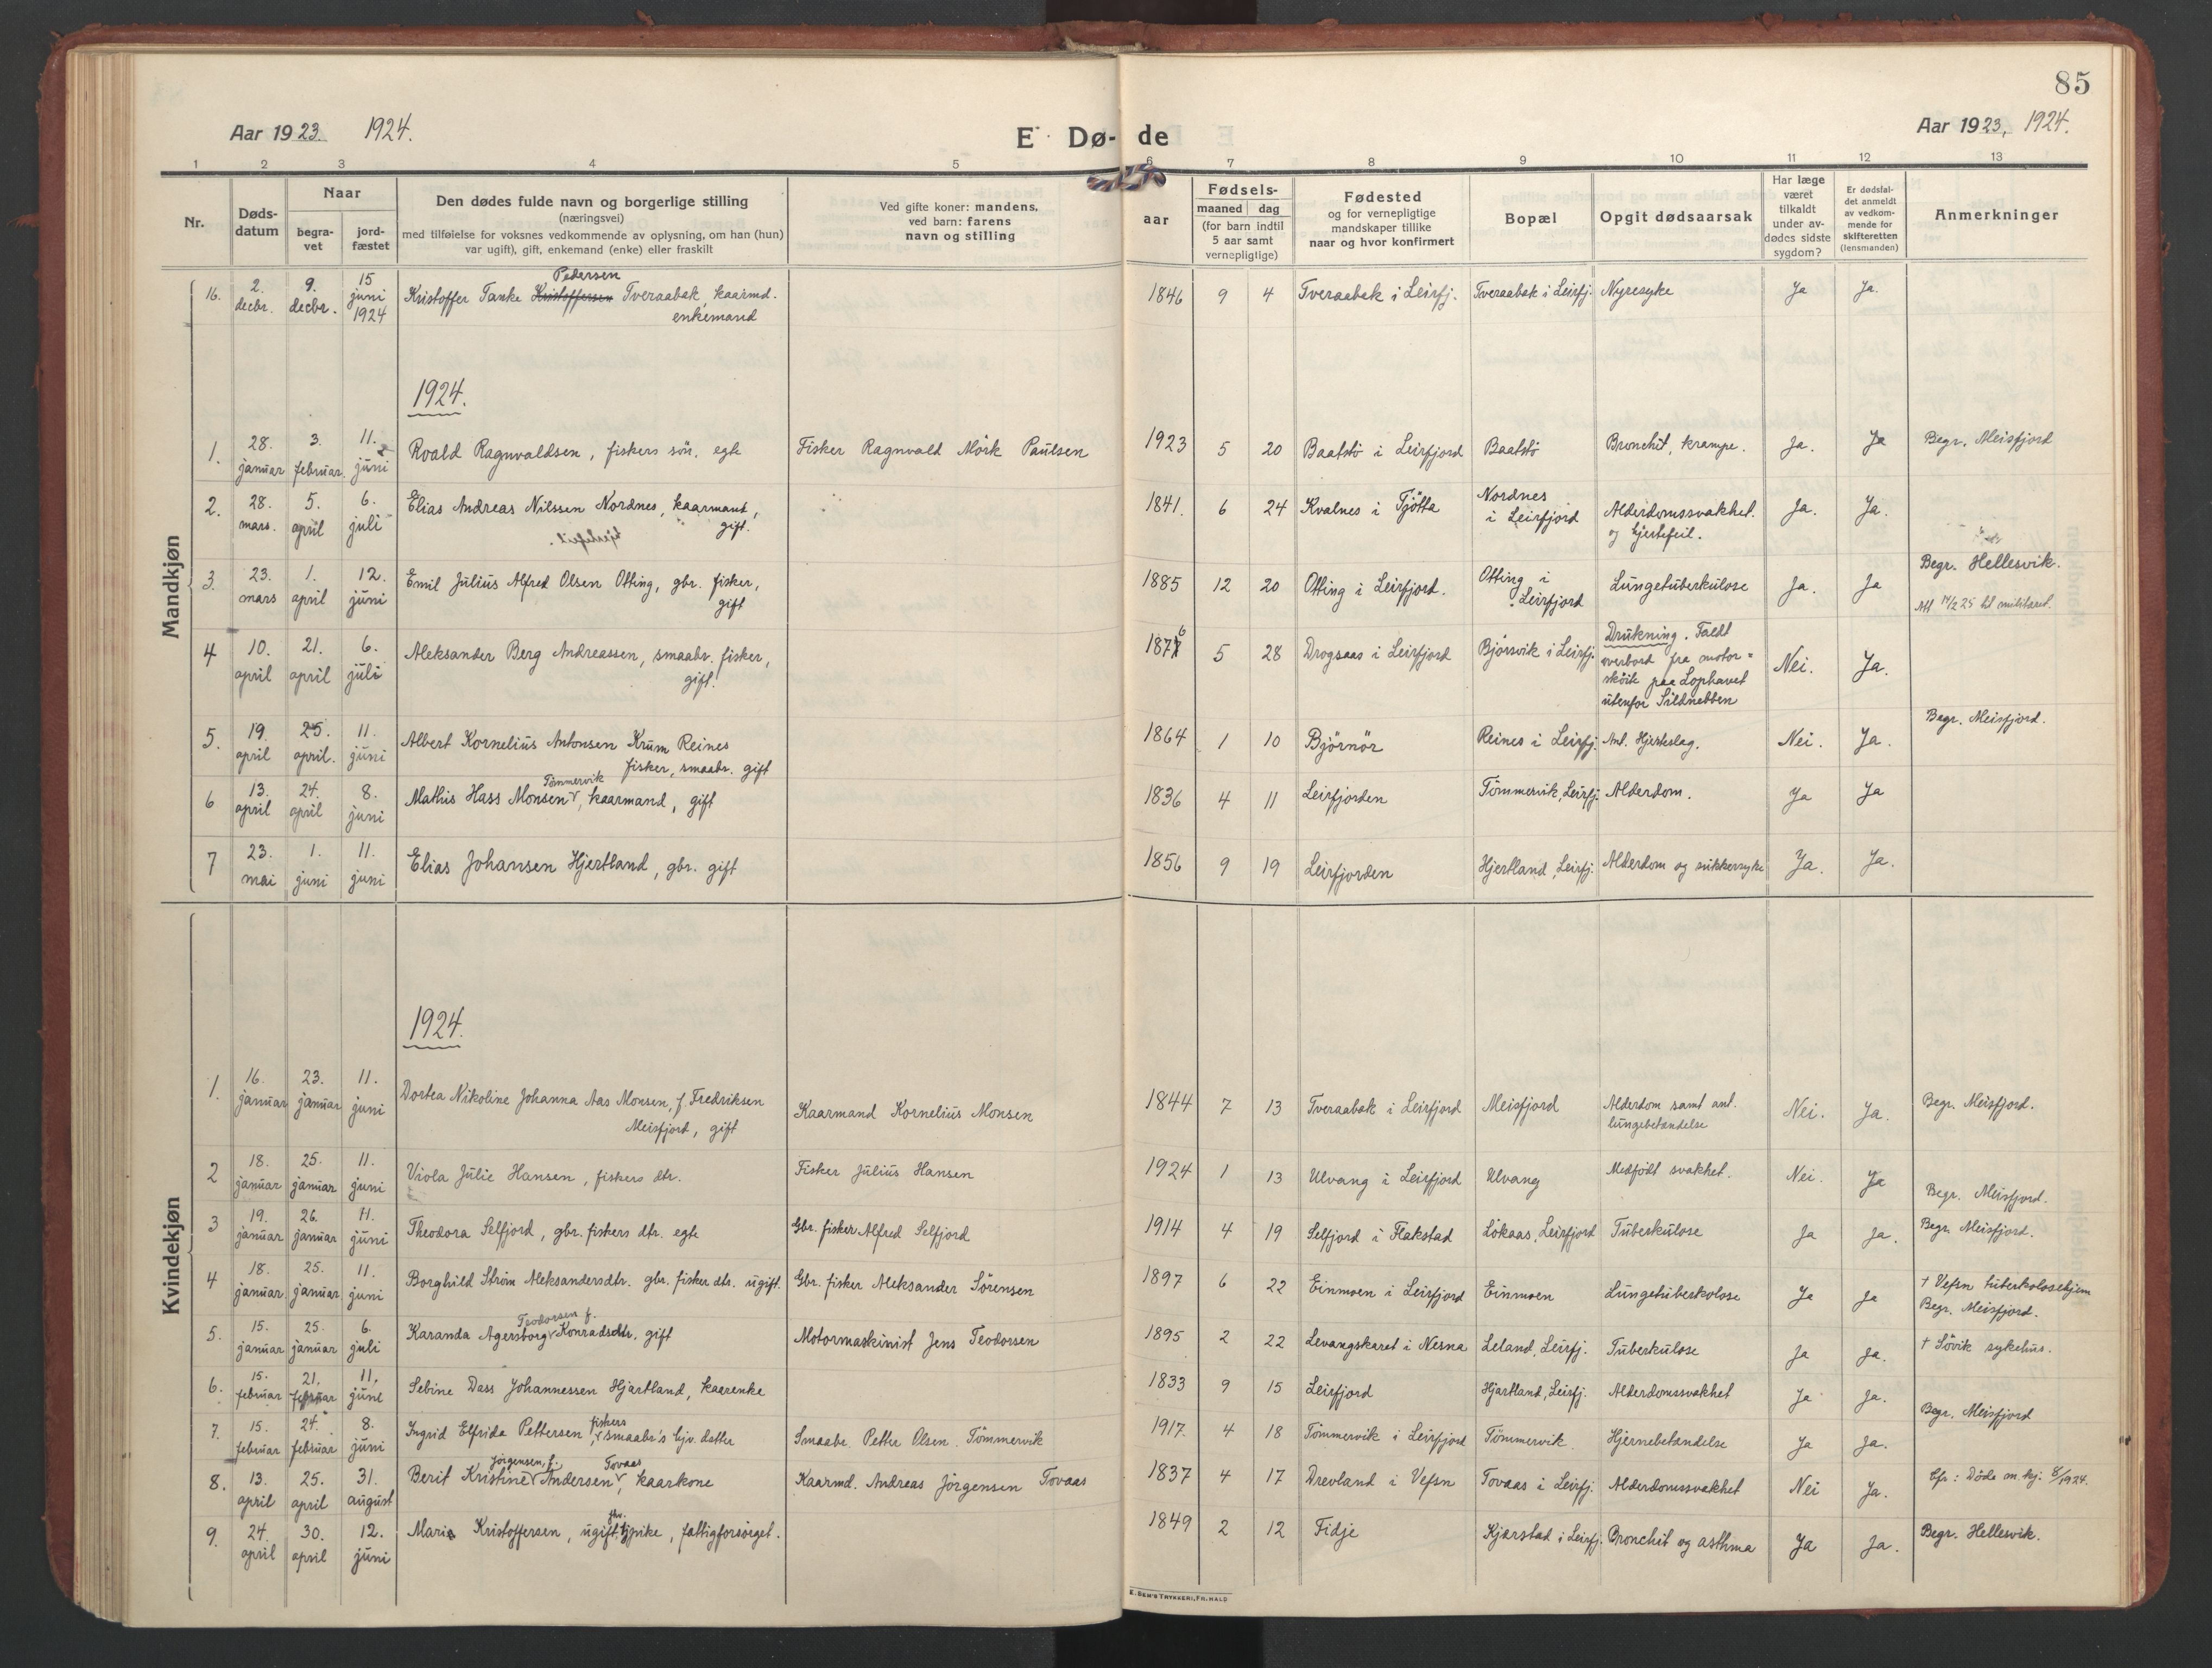 85
Aar 1923. 1924.
E. Dø-de
Aar 1923, 1924.
1 2 3 4 5 6 7 8 9 10 11 12 13
Nr.
Døds-
datum
Naar
begra-
vet
jord-
fæstet
Den dødes fulde navn og borgerlige stilling
(næringsvei)
med tilføielse for voksnes vedkommende av oplysning, om han (hun)
var ugift), gift, enkemand (enke) eller fraskilt
Ved gifte koner: mandens,
ved barn: farens
navn og stilling
aar
Fødsels-
maaned dag
(for barn indtil
5 aar samt
vernepligtige)
Fødested
og for vernepligtige
mandskaper tillike
naar og hvor konfirmert
Bopæl
Opgit dødsaarsak
Har læge
været
tilkaldt
under av-
dødes sidste
sygdom?
Er dødsfal-
det anmeldt
av vedkom-
mende for
skifteretten
(lensmanden)
Anmerkninger
Mandkjøn
16. 2. decbr. 9. decbr. 15 juni 1924 Kristoffer Tanke Kristoffersen Pedersen Tveraabak, kaarmd. enkemand 1846 9 4 Tveraabak i Leirfj. Tveraabak i Leirfj. Nyresyke Ja Ja.
1924.
1. 28. januar 3. februar. 11. juni Roald Ragnvaldsen, fiskers sön, egte Fisker Ragnvald Mörk Paulsen 1923 5 20 Baatstö i Leirfjord Baatstö Bronchit, krampe. Ja. Ja Begr. Meisfjord
2. 28. mars. 5. april 6. juli Elias Andreas Nilssen Nordnes, kaarmand, gift. 1841. 6 24 Kvalnes i Tjötta Nordnes i Leirfjord Alderdomssvakhet. og hjertefeil. Ja. Ja.
3. 23. mars 1. april 12. juni Emil Julius Alfred Olsen Otting, gbr. fisker, gift 1885 12 20 Otting i Leirfjord. Otting i Leirfjord Lungetuberkulose Ja. Ja Begr. Hellesvik.
Att 14/2 25 til militæret.
4 10. april 21. april 6. juli Aleksander Berg Andreassen, smaabr. fisker, gift. 1876 5 28 Drogsaas i Leirfjord Bjørsvik i Leirfj. Drukning. Faldt
overbord fra motor=
sköite paa Lophavet
utenfor Sildnebben Nei. Ja.
5. 19. april 25. april. 11. juni Albert Kornelius Antonsen Krum Reines fisker, smaabr. gift 1864 1 10 Björnör Reines i Leirfj. Ant. Hjerteslag. Nei. Ja. Begr. Meisfjord.
6 13. april 24. april 8. juni Mathis Hass Monsen Tömmervik, kaarmand, gift 1836 4 11 Leirfjorden Tömmervik, Leirfj. Alderdom. Ja Ja
7 23. mai 1. juni 11. juni Elias Johansen Hjertland, gbr. gift 1856 9 19 Leirfjorden Hjertland, Leirfj. Alderdom og sukkersyke Ja. Ja.
Kvindekjøn
1924.
1. 16. januar 23. januar 11. juni Dortea Nikoline Johanna Aas Monsen, f. Fredriksen Meisfjord, gift Kaarmand Kornelius Monsen 1844 7 13 Tveraabak i Leirfjord Meisfjord Alderdom samt ant. lungebetendelse Nei. Ja. Begr. Meisfjord.
2 18. januar 25. januar 11. juni Viola Julie Hansen, fiskers dtr. Fisker Julius Hansen 1924 1 13 Ulvang i Leirfjord Ulvang Medfödt svakhet. Nei. Ja Begr. Meisfjord.
3 19. januar 26. januar 11. juni Theodora Selfjord, gbr. fiskers dtr. egte Gbr. fisker Alfred Selfjord 1914 4 19 Selfjord i Flakstad Lökaas, Leirfjord Tuberkulose Ja Ja. Begr. Meisfjord.
4 18. januar 25. januar 11. juni Borghild Ström Aleksandersdtr. gbr. fisker dtr. ugift. Gbr. fisker Aleksander Sörensen 1897 6 22 Einmoen i Leirfjord Einmoen Lungetuberkolose Ja Ja † Vefsn tuberkolosehjem
Begr. Meisfjord.
5. 15. januar 25. januar 6. juli Karanda Agersborg Teodorsen f. Konradsdtr, gift Motormaskinist Jens Teodorsen 1895 2 22 Levangskaret i Nesna Leland, Leirfj. Tuberkulose Ja Ja. † Sövik sykehus.
6. 15. februar 21. februar 11. june Sebine Dass Johannessen Hjartland, kaarenke 1833 9 15 Leirfjord Hjartland, Leirfj. Alderdomssvakhet Ja Ja.
7. 15. februar 24. februar 8. juni Ingrid Elfrida Pettersen, fiskers smaabr's hjv. datter Smaabr. Petter Olsen Tömmervik 1917. 4 18 Tömmervik i Leirfjord Tömmervik. Hjernebetendelse Ja Ja. Begr. Meisfjord
8. 13. april 25. april 31. august Berit Kristine Jörgensen, f. Andersen Tovaas, kaarkone Kaarmd. Andreas Jörgensen Tovaas 1837 4 17 Drevland i Vefsn Tovaas i Leirfj. Alderdomssvakhet Nei Ja. Cfr: Döde m. kj. 8/1924.
9. 24. april 30. april 12. juni Marie Kristoffersen, ugift, pike, fattigforsörget. 1849 2 12 Fidje Kjærstad i Leirfj. Bronchit og asthma Ja Ja. Begr. Hellesvik.
E. SEM'S TRYKKERI, FR. HALD